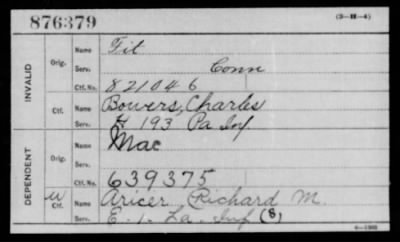 876379 (3-H-4)
INVALID
Orig. Name Tit
Serv. Conn
Ctf. No. 821046
Ctf. Name Bowers, Charles
Serv. H 193 Pa Inf
DEPENDENT
Orig. Name Mac
Serv.
Ctf. No. 639375
W Ctf. Name Aricer Richard M.
Serv. E. 1. La. Inf (8)